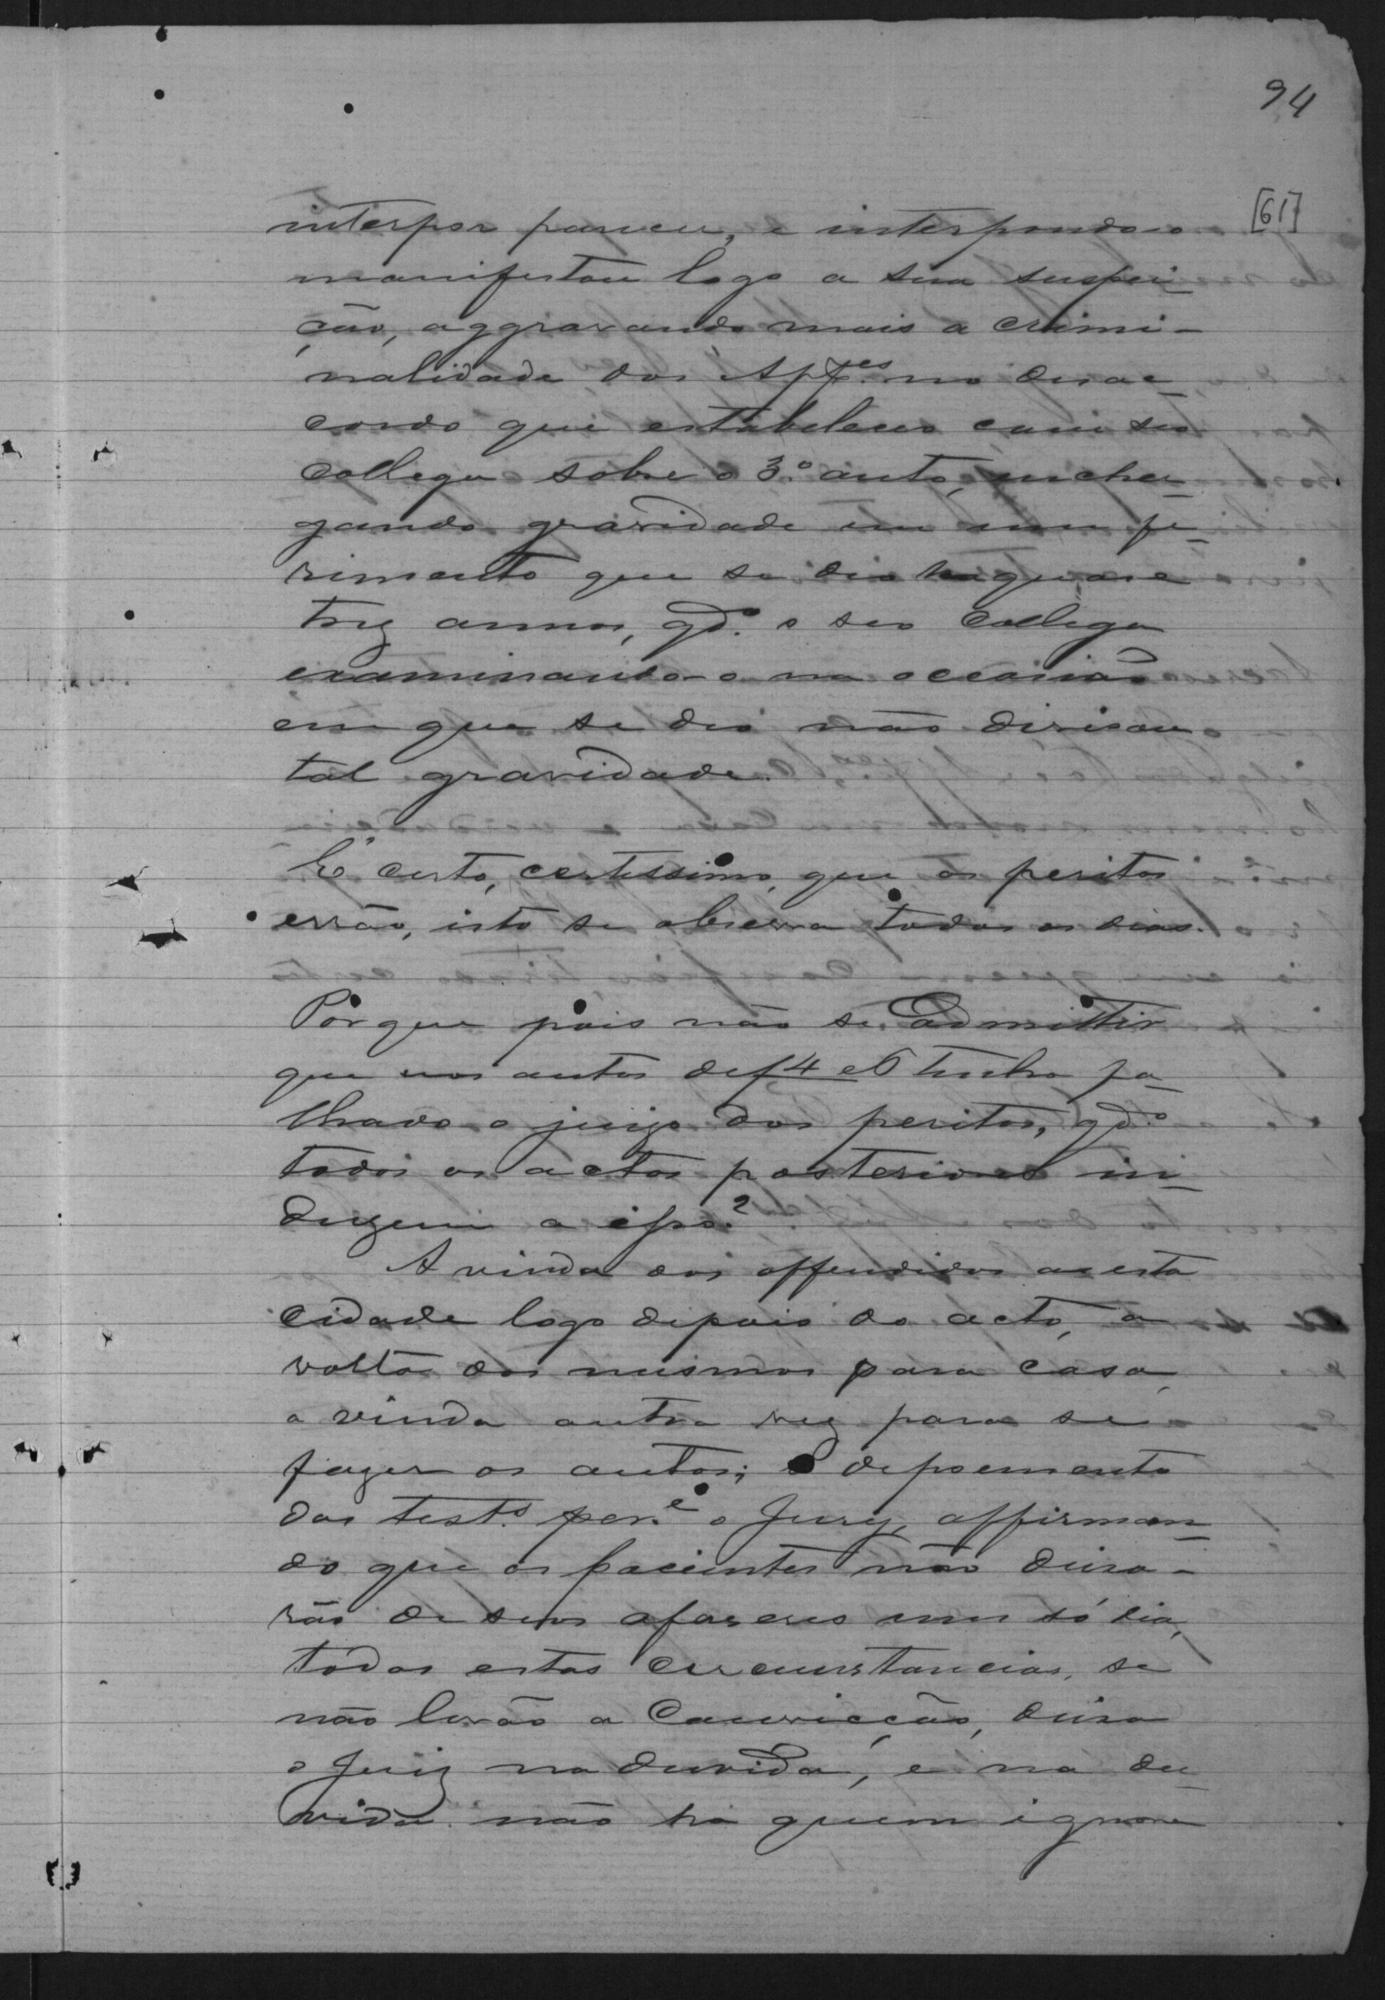 94
[61]
interpor parecer, e interpondo-o
manifestou logo a sua suspei-
ção, aggravando mais a crimi-
nalidade dos App.es no desac-
cordo que estabeleceu com seu
collega sobre o 3.º auto, encher-
gando gravidade em um fe-
rimento que se deo ha quase
trez annos, qd.º o seo collega
examinando-o na occasião
em que se deo não divisou
tal gravidade.
É certo, certissimo, que os peritos
errão, isto se observa todos os dias.
Porque pois não se admittir
que nos autos de f 4 e 6 tenha fa-
lhado o juizo dos peritos, qd.º
todos os actos posteriores in-
duzem a isso?
A vinda dos offendidos a esta
cidade logo depois do acto, a
volta dos mesmos para casa,
a vinda outra vez para se
fazer os autos; o depoemento
das test.s per.e o Jury, affirman-
do que os pacientes não deixa-
rão de seus afazeres um só dia,
todas estas circunstancias, se
não levão a Convicção, deixa
o Juiz na duvida, e na du-
vida não ha quem ignore